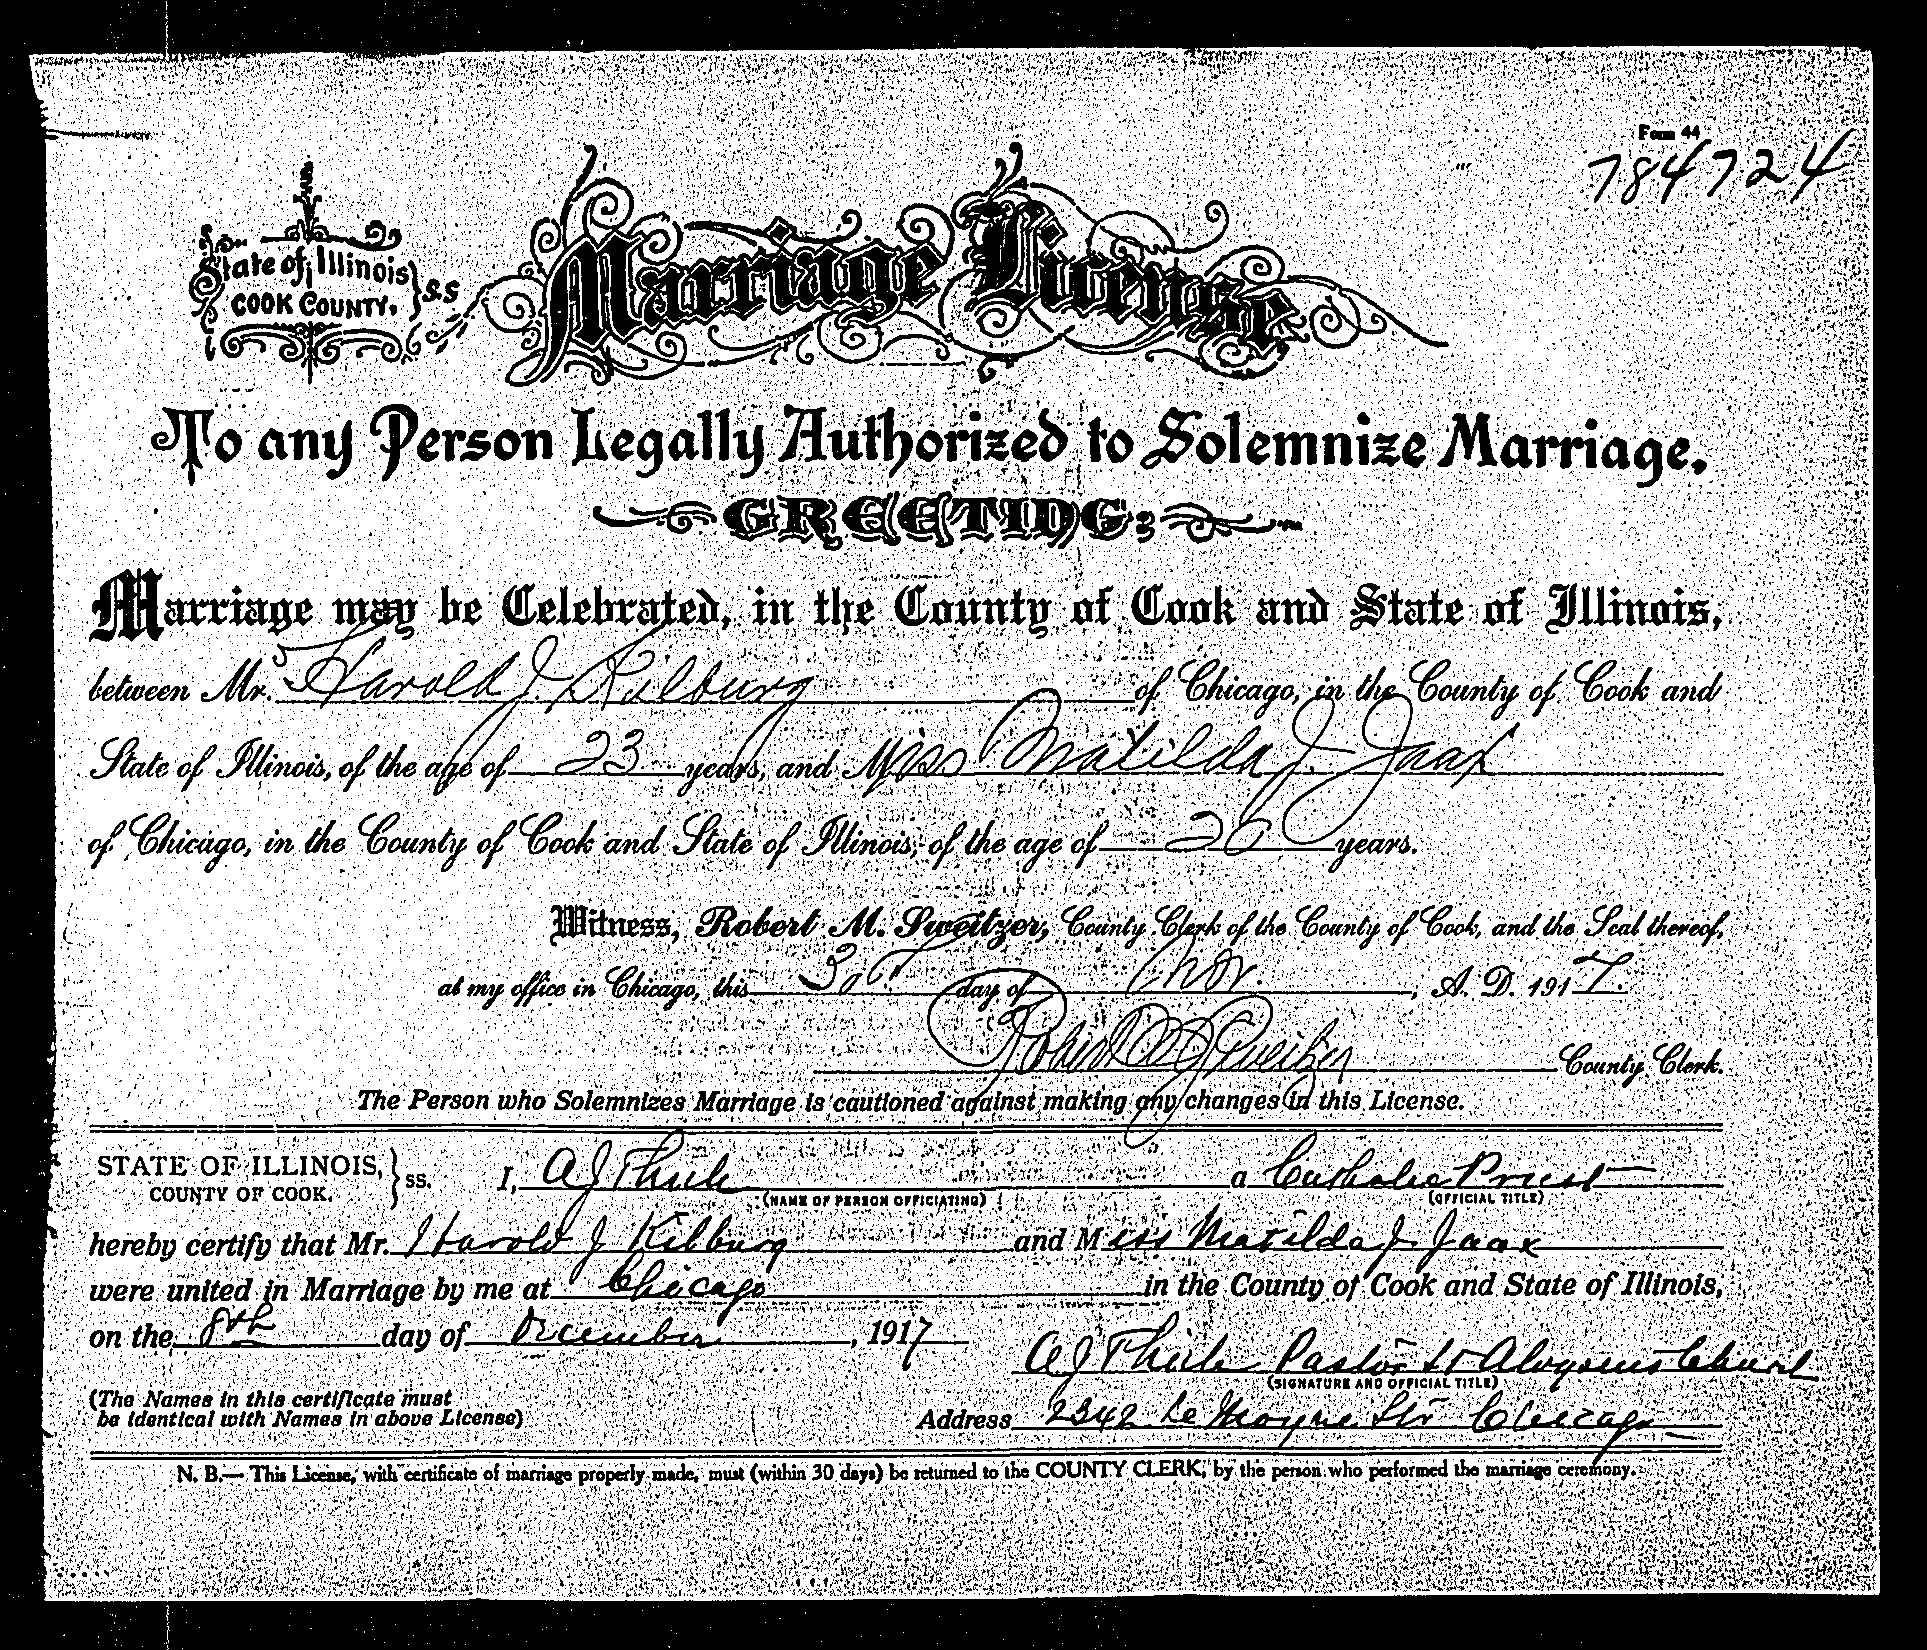 Form 44
784724
State of Illinois
COOK COUNTY, } S.S
Marriage License
To any Person Legally Authorized to Solemnize Marriage.
GREETING:
Marriage may be Celebrated, in the County of Cook and State of Illinois,
between Mr. Harold J. Kilburg of Chicago, in the County of Cook and
State of Illinois, of the age of 23 years, and Miss Matilda J. Jaax
of Chicago, in the County of Cook and State of Illinois, of the age of 26 years.
Witness, Robert M. Sweitzer, County Clerk of the County of Cook, and the Seal thereof,
at my office in Chicago, this 30 day of Nov. , A. D. 1917.
Robert M Sweitzer County Clerk.
The Person who Solemnizes Marriage is cautioned against making any changes in this License.
STATE OF ILLINOIS, } ss. I, A J Thiele a Catholic Priest
COUNTY OF COOK. (NAME OF PERSON OFFICIATING) (OFFICIAL TITLE)
hereby certify that Mr. Harold J Kilburg and Miss Matilda J. Jaax
were united in Marriage by me at Chicago in the County of Cook and State of Illinois,
on the 8th day of December , 1917
A J Thiele Pastor St Aloysius Church
(SIGNATURE AND OFFICIAL TITLE)
(The Names in this certificate must
be identical with Names in above License)
Address 2342 Le Moyne Str Chicago
N. B.— This License, with certificate of marriage properly made, must (within 30 days) be returned to the COUNTY CLERK, by the person who performed the marriage ceremony.